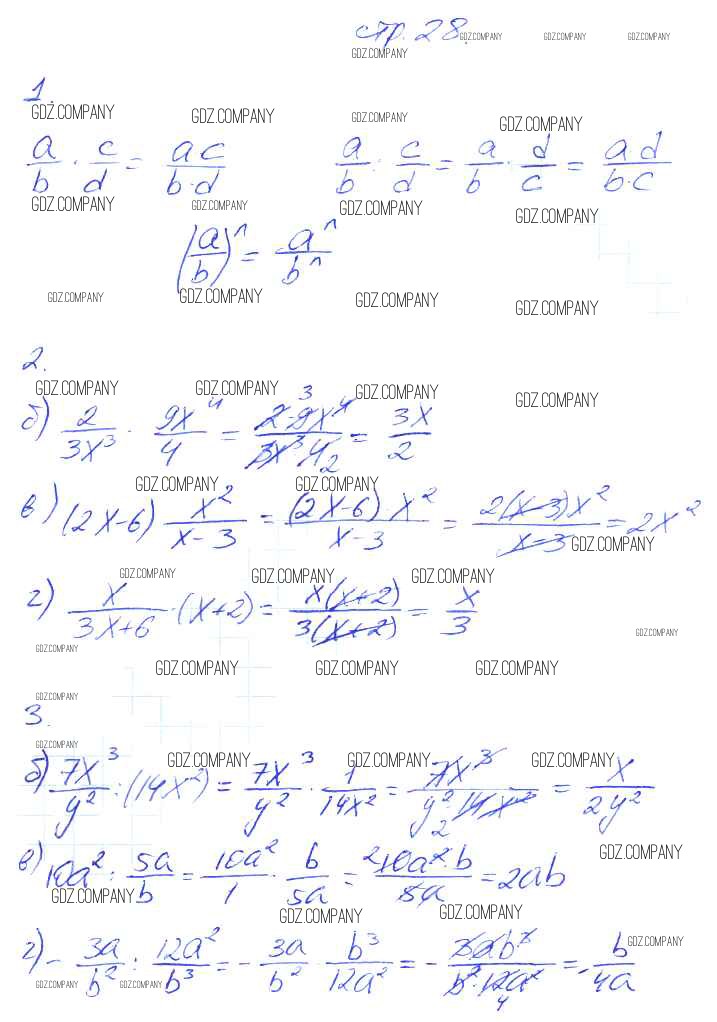 стр. 28.
GDZ.COMPANY GDZ.COMPANY GDZ.COMPANY
GDZ.COMPANY
1.
GDZ.COMPANY GDZ.COMPANY GDZ.COMPANY GDZ.COMPANY
a/b · c/d = ac/b·d a/b : c/d = a/b · d/c = ad/b·c
GDZ.COMPANY GDZ.COMPANY GDZ.COMPANY GDZ.COMPANY
(a/b)^n = a^n/b^n
GDZ.COMPANY GDZ.COMPANY GDZ.COMPANY GDZ.COMPANY
2.
GDZ.COMPANY GDZ.COMPANY GDZ.COMPANY GDZ.COMPANY
б) 2/3x³ · 9x⁴/4 = 2·9x⁴/3x³·4 = 3x/2
3
2
GDZ.COMPANY GDZ.COMPANY
в) (2x-6) x²/x-3 = (2x-6)·x²/x-3 = 2(x-3)x²/x-3 = 2x²
GDZ.COMPANY
GDZ.COMPANY GDZ.COMPANY GDZ.COMPANY
г) x/3x+6 · (x+2) = x(x+2)/3(x+2) = x/3
GDZ.COMPANY
GDZ.COMPANY
GDZ.COMPANY GDZ.COMPANY GDZ.COMPANY
GDZ.COMPANY
3.
GDZ.COMPANY
GDZ.COMPANY GDZ.COMPANY GDZ.COMPANY
б) 7x³/y² : (14x²) = 7x³/y² · 1/14x² = 7x³/y² 14x² = x/2y²
2
GDZ.COMPANY
в) 10a² : 5a/b = 10a²/1 · b/5a = 10a²·b/5a = 2ab
2
GDZ.COMPANY
GDZ.COMPANY GDZ.COMPANY
г) - 3a/b² : 12a²/b³ = - 3a/b² · b³/12a² = - 3ab³/b²·12a² = - b/4a
4
GDZ.COMPANY
GDZ.COMPANY GDZ.COMPANY